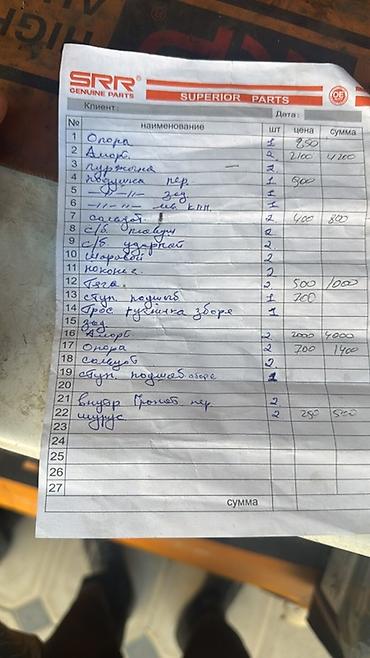 SRR
GENUINE PARTS
SUPERIOR PARTS
OE
Клиент:
Дата:
№ наименование шт цена сумма
1 Опора 1 850
2 Аморт. 2 2100 4200
3 пружина — 2
4 подушка пер 1 900
5 -"-"- зад 1
6 -"-"- лев кпп. 1
7 сайлент. 2 400 800
8 с/б плавущ 2
9 с/б ударной 2
10 шаровой 2
11 након. 2
12 Тяга. 2 500 1000
13 ступ. подшыб 1 700
14 Трос ручника зборе 1
15 зад.
16 Аморт 2 2000 4000
17 Опора 2 700 1400
18 2
19 ступ. подшыб зборе 1
20
21 внутр пер 2
22 шурус 2 250 500
23
24
25
26
27
сумма